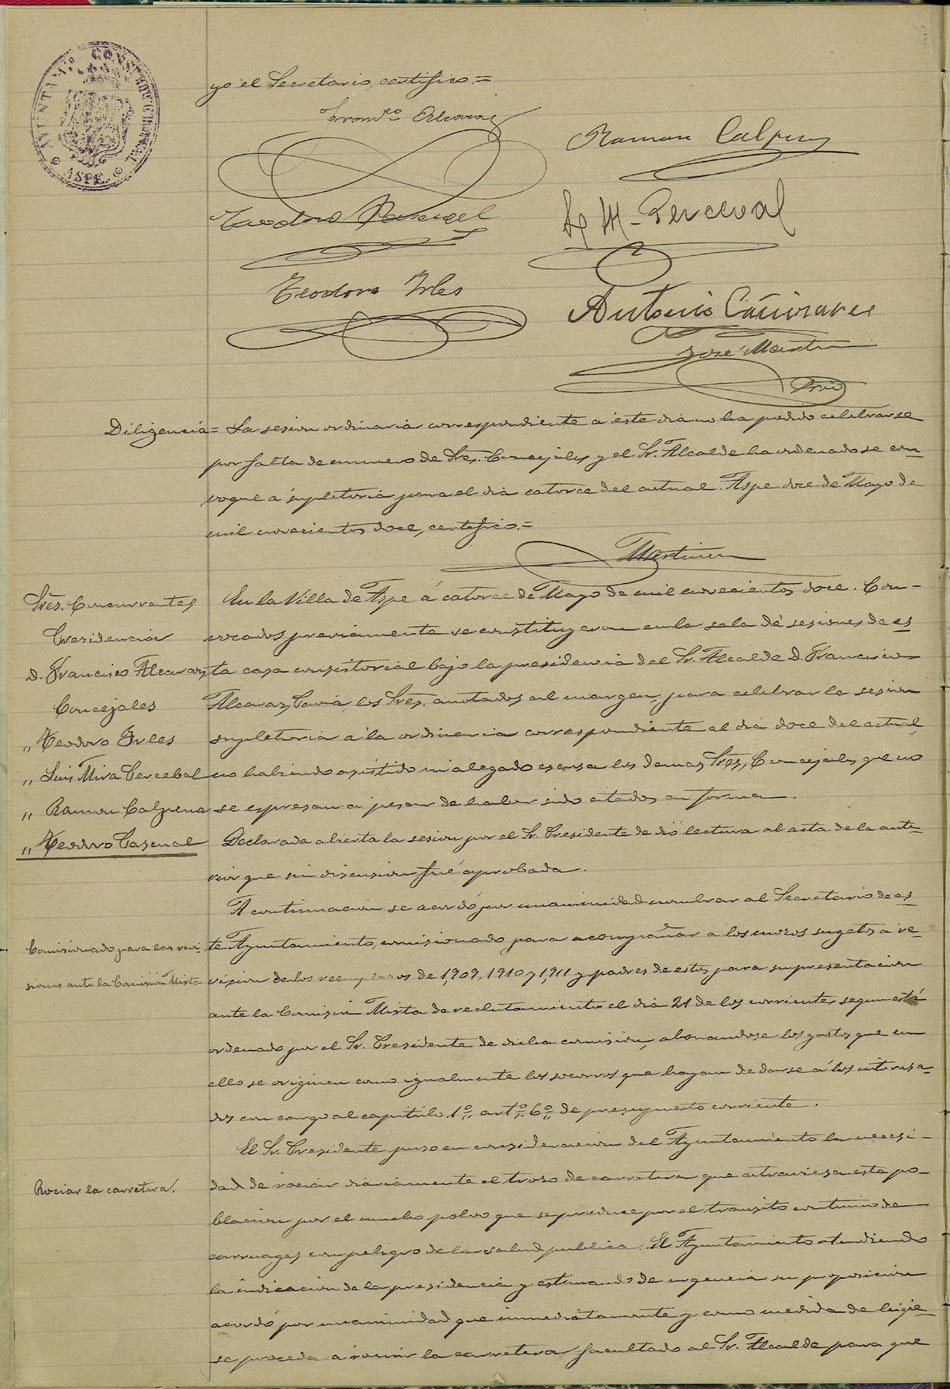 AYUNTAMTO CONSTITUCIONAL
ASPE
yo el Secretario, certifico.=
Franco Alcaraz
Ramon Calpena
Teodoro Pascual
L. M- Perceval
Teodoro Irles
Antonio Cañizares
José Martin
Diligencia= La sesion ordinaria correspondiente a este dia no ha podido celebrarse
por falta de numero de Sres. Concejales y el Sr. Alcalde ha ordenado se con-
voque a supletoria para el dia catorce del actual. Aspe doce de Mayo de
mil novecientos doce, certifico.=
Sres. Concurrentes
Presidencia
D. Francisco Alcaraz
Concejales
„ Teodoro Irles
„ Luis Mira Percebal
„ Ramon Calpena
„ Teodoro Pascual
En la Villa de Aspe á catorce de Mayo de mil novecientos doce. Con-
vocados previamente se constituyeron en la sala de sesiones de es
ta casa consistorial bajo la presidencia del Sr. Alcalde D. Francisco
Alcaraz los Sres. anotados al margen, para celebrar la sesion
supletoria a la ordinaria correspondiente al dia doce del actual,
no habiendo asistido ni alegado escusa los demas Sres. Concejales que no
se espresan a pesar de haber sido citados en forma.
Declarada abierta la sesion por el Sr. Presidente se dió lectura al acta de la ante-
rior que sin discusion fué aprobada.
Comisionado para las revi-
siones ante la Comisión Mixta
A continuacion se acordó por unanimidad nombrar al Secretario de es
te Ayuntamiento, comisionado para acompañar a los mozos sugetos a re-
vision de los reemplazos de 1,909, 1,910 y 1,911 y padres de estos para su presentacion
ante la Comision Mixta de reclutamiento el dia 21 de los corrientes segun está
ordenado por el Sr. Presidente de dicha comision, abonandose los gastos que en
ello se originen como igualmente los socorros que hayan de darse á los interesa-
dos con cargo al capitulo 1º arto 6º de presupuesto corriente.
Rociar la carretera.
El Sr. Presidente puso en consideracion del Ayuntamiento la necesi-
dad de rociar diariamente el trozo de carretera que atraviesa esta po-
blacion por el mucho polvo que se produce por el transito continuo de
carruages con peligro de la salud publica. El Ayuntamiento atendiendo
la indicacion de la presidencia y estimando de urgencia su proposicion
acordó por unanimidad que inmediatamente y como medida de higie-
se proceda a rociar la carretera facultado al Sr. Alcalde para que